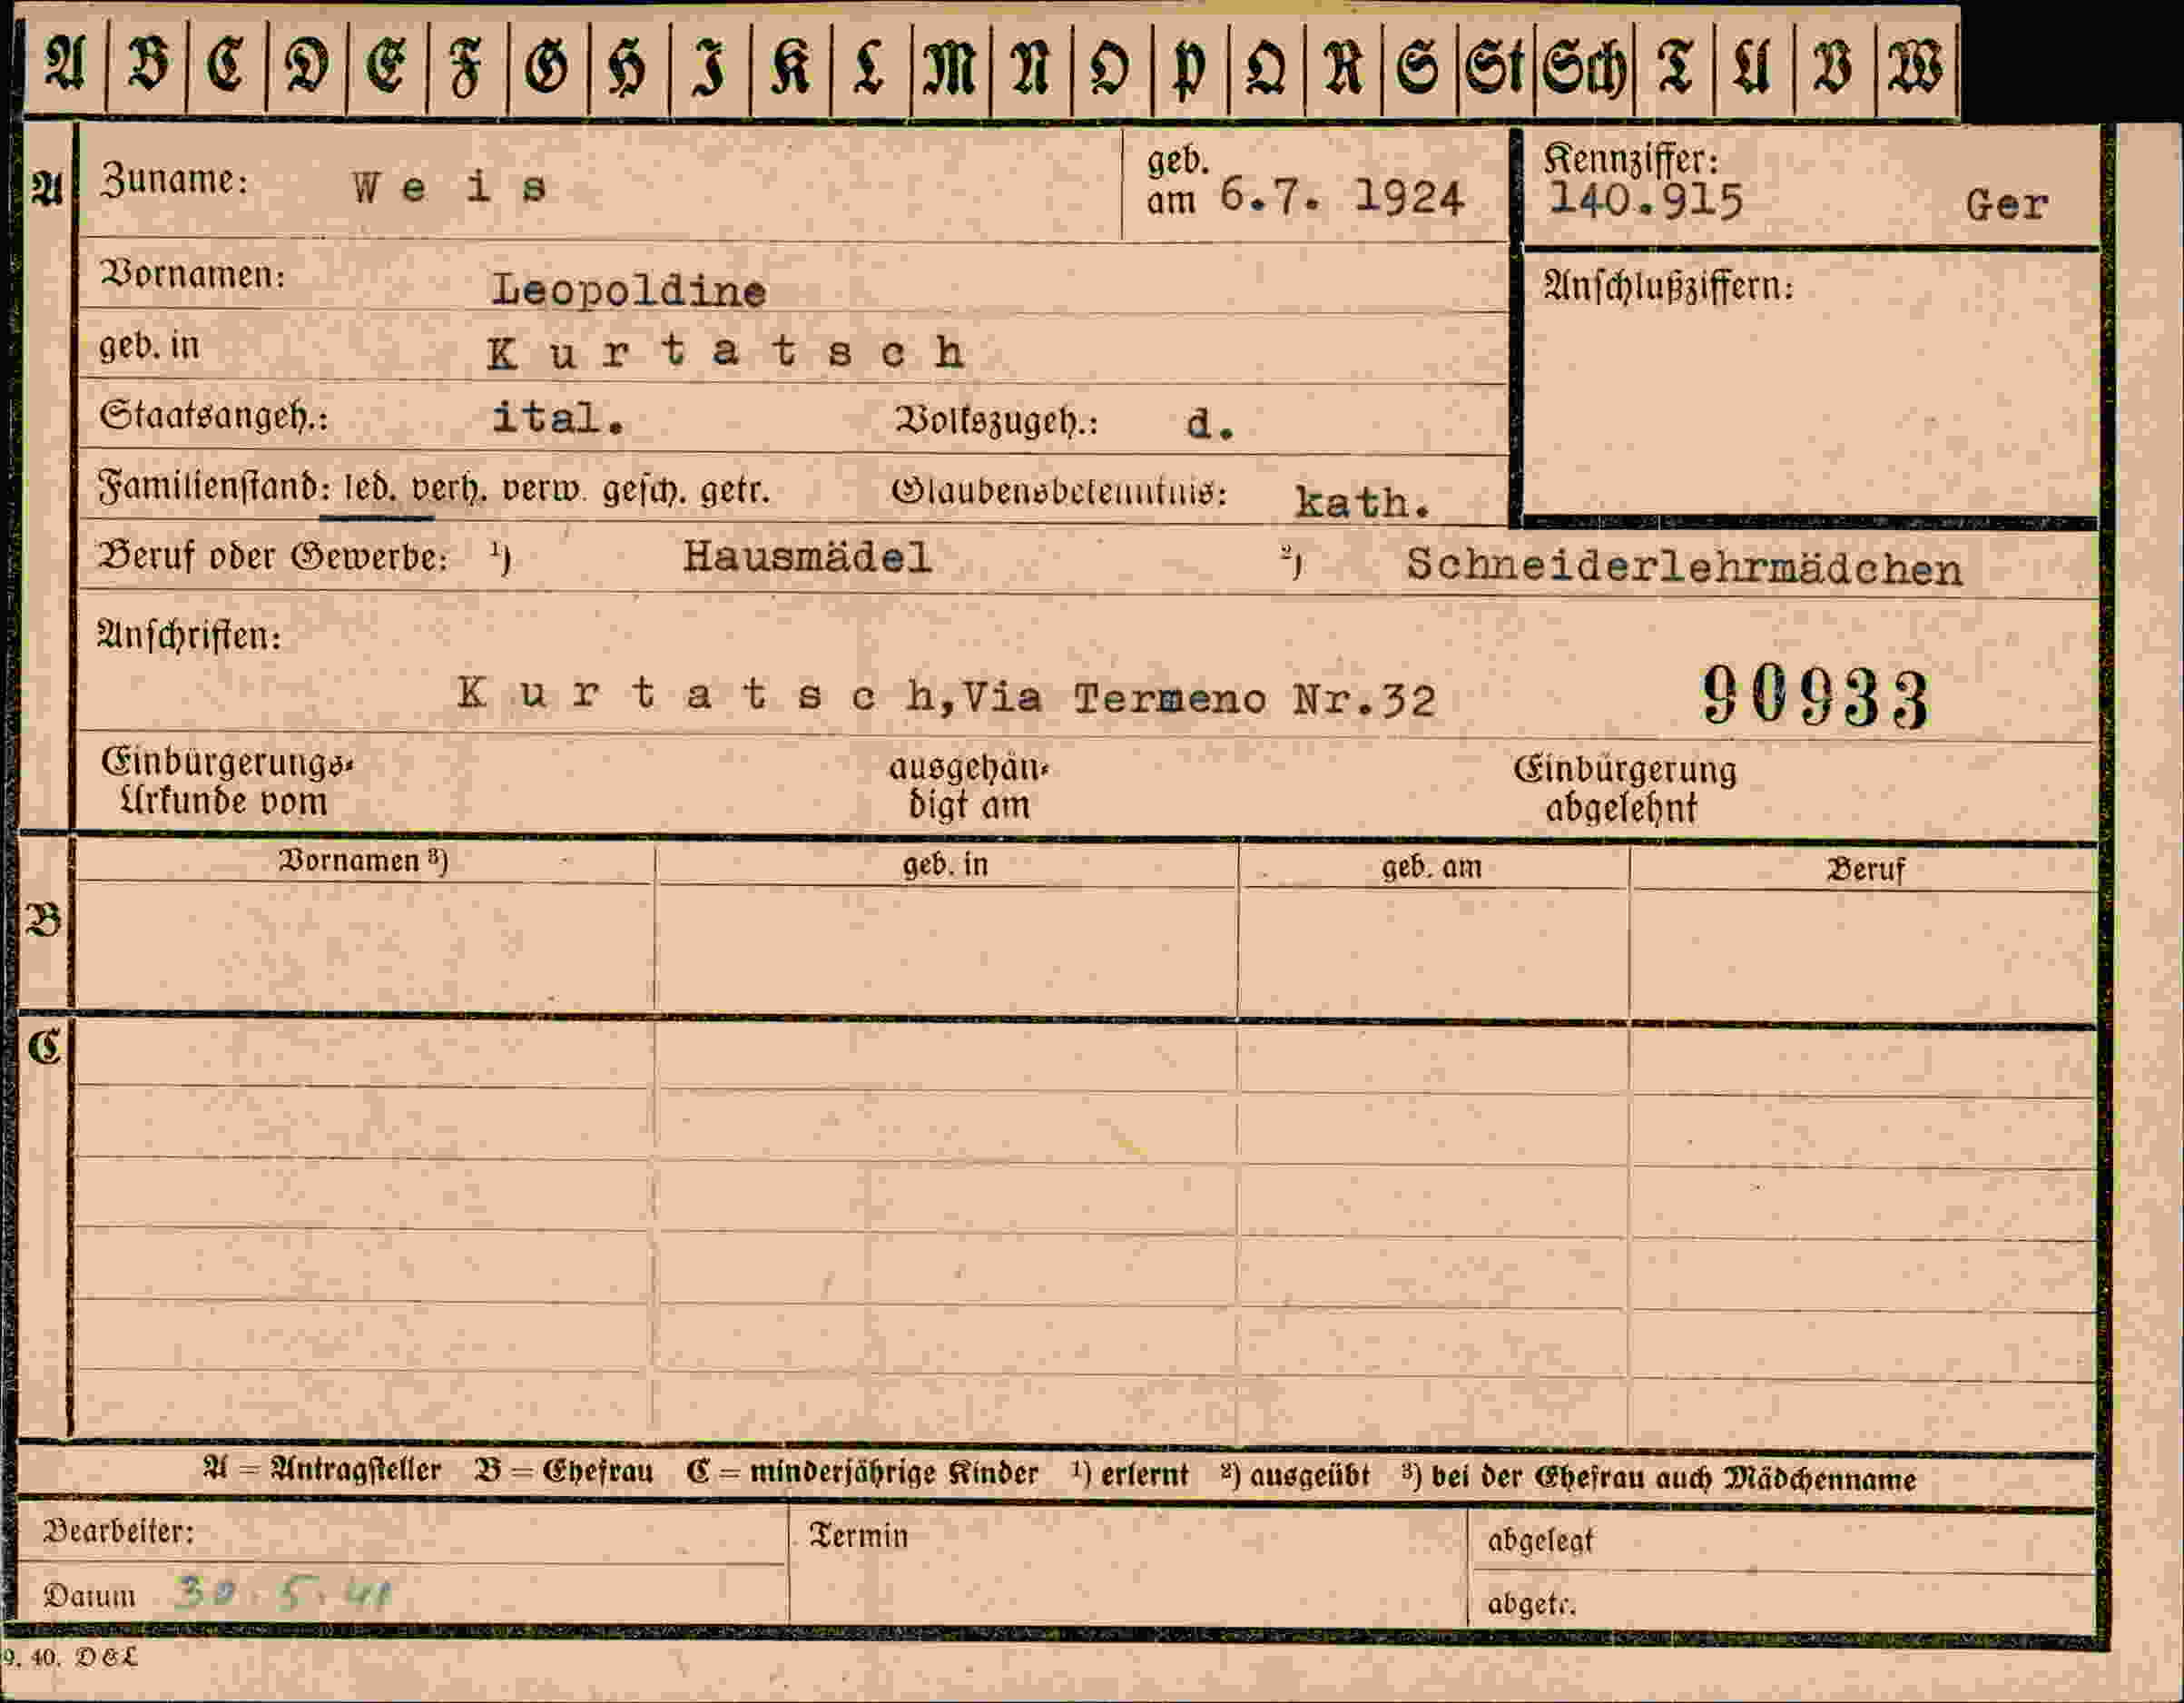 A B C D E F G H I K L M N O P Q R S St Sch T U V W
A Zuname: W e i s geb. am 6.7. 1924 Kennziffer: 140.915 Ger
Vornamen: Leopoldine Anschlußziffern:
geb. in K u r t a t s c h
Staatsangeh.: ital. Volkszugeh.: d.
Familienstand: led. verh. verw. gesch. getr. Glaubensbekenntnis: kath.
Beruf oder Gewerbe: ¹) Hausmädel ²) Schneiderlehrmädchen
Anschriften:
K u r t a t s c h,Via Termeno Nr.32 90933
Einbürgerungs- ausgehän- Einbürgerung
Urkunde vom digt am abgelehnt
Vornamen ³) geb. in geb. am Beruf
B
C
A = Antragsteller B = Ehefrau C = minderjährige Kinder ¹) erlernt ²) ausgeübt ³) bei der Ehefrau auch Mädchenname
Bearbeiter: Termin abgelegt
Datum 30.5.41 abgetr.
9. 40. D&L